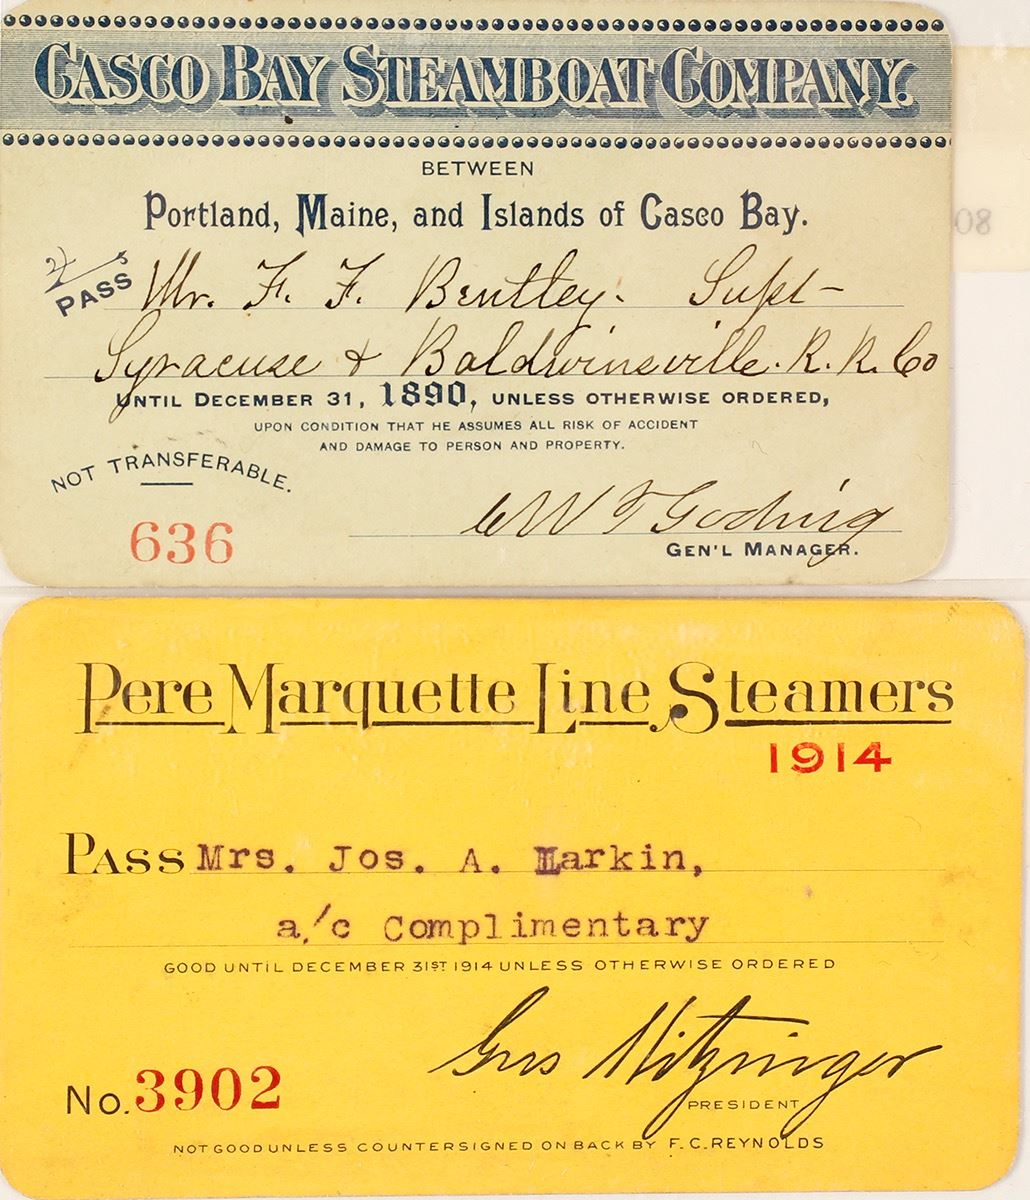 CASCO BAY STEAMBOAT COMPANY.
BETWEEN
Portland, Maine, and Islands of Casco Bay.
PASS Mr. F. F. Bentley. Supt
Syracuse & Baldwinsville. R. R. Co
UNTIL DECEMBER 31, 1890, UNLESS OTHERWISE ORDERED,
UPON CONDITION THAT HE ASSUMES ALL RISK OF ACCIDENT
AND DAMAGE TO PERSON AND PROPERTY.
NOT TRANSFERABLE.
636
C W T Goding
GEN'L MANAGER.
08
Pere Marquette Line Steamers
1914
PASS Mrs. Jos. A. Larkin,
a/c Complimentary
GOOD UNTIL DECEMBER 31ST 1914 UNLESS OTHERWISE ORDERED
Gus Kitzinger
PRESIDENT
No. 3902
NOT GOOD UNLESS COUNTERSIGNED ON BACK BY F. C. REYNOLDS